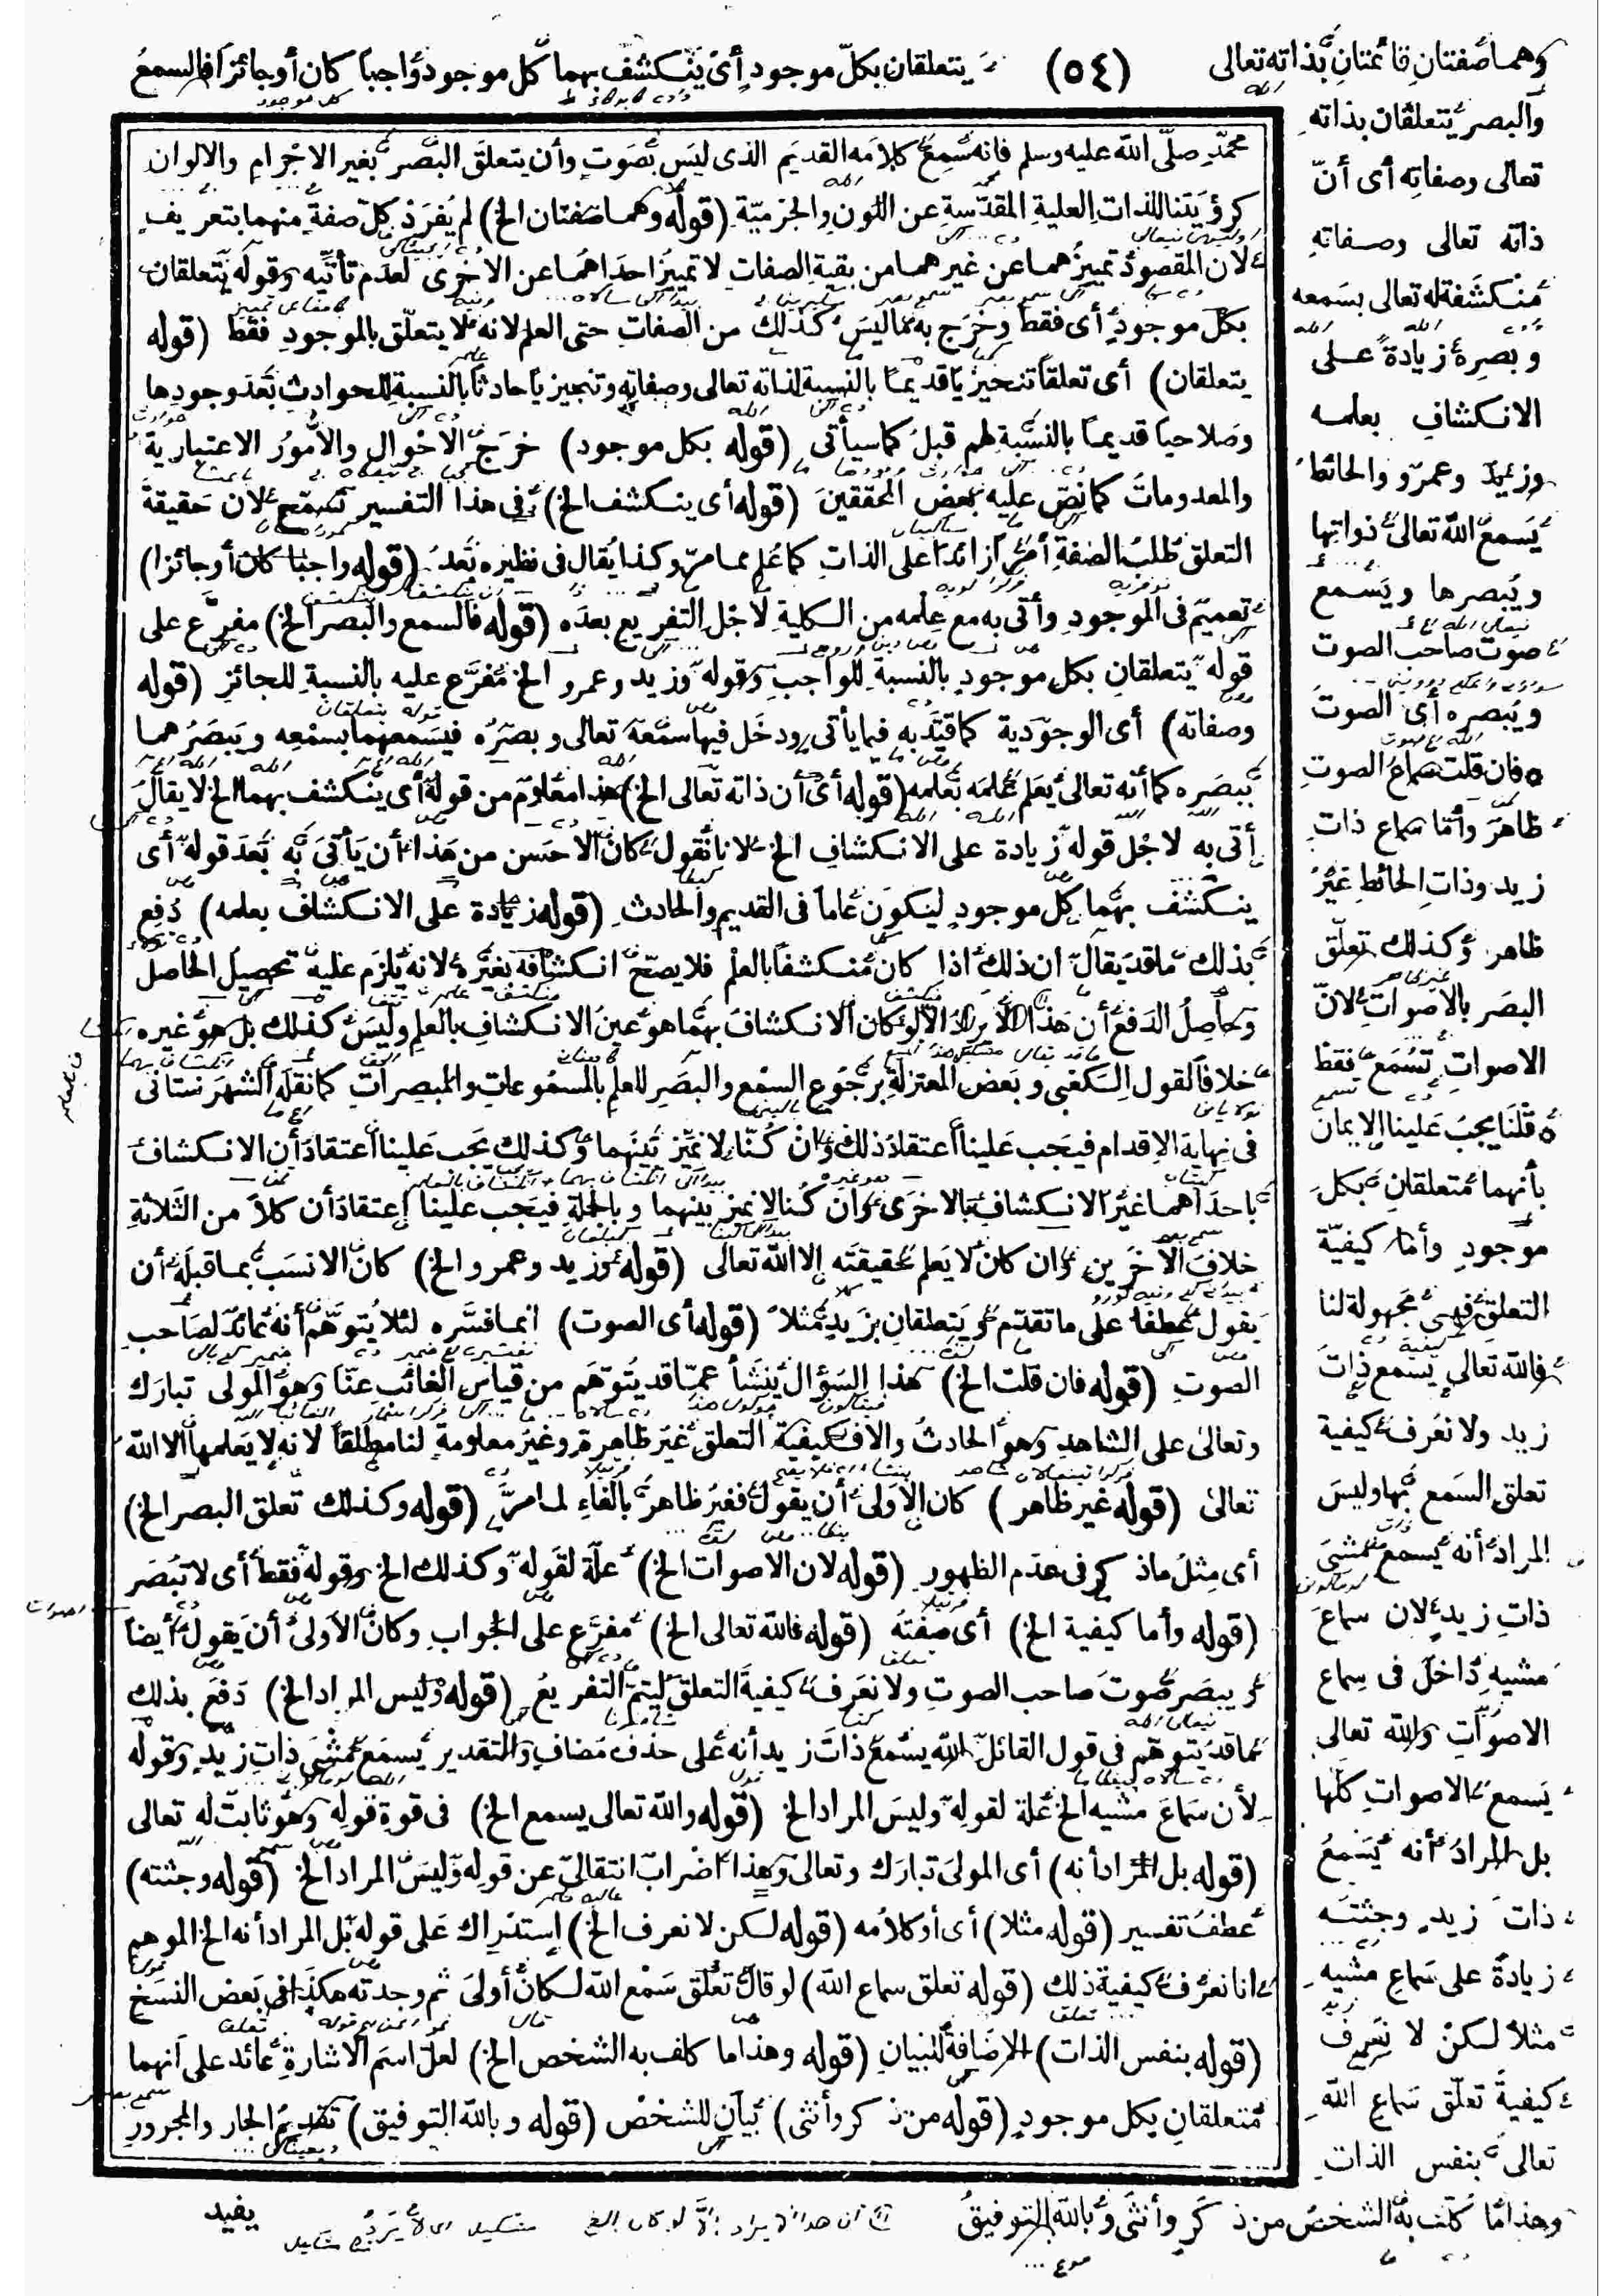 وهما صفتان قائمتان بذاته تعالى (٥٤) يتعلقان بكل موجود أى ينكشف بهما كل موجود واجبا كان أو جائزا فالسمع
والبصر يتعلقان بذاته
تعالى وصفاته أى أن
ذاته تعالى وصفاته
منكشفة له تعالى بسمعه
وبصره زيادة على
الانكشاف بعلمه
وزيد وعمرو والحائط
يسمع الله تعالى ذواتها
ويبصرها ويسمع
صوت صاحب الصوت
ويبصره أى الصوت
فان قلت سماع الصوت
ظاهر وأما سماع ذات
زيد وذات الحائط غير
ظاهر وكذلك تعلق
البصر بالاصوات لان
الاصوات تسمع فقط
قلنا يجب علينا الايمان
بأنهما متعلقان بكل
موجود وأما كيفية
التعلق فهى مجهولة لنا
فالله تعالى يسمع ذات
زيد ولا نعرف كيفية
تعلق السمع بها وليس
المراد أنه يسمع مشى
ذات زيد لان سماع
مشيه داخل فى سماع
الاصوات والله تعالى
يسمع الاصوات كلها
بل المراد أنه يسمع
ذات زيد وجثته
زيادة على سماع مشيه
مثلا لكن لا نعرف
كيفية تعلق سماع الله
تعالى بنفس الذات
وهذا ما كلف به الشخص من ذكر وأنثى وبالله التوفيق
محمد صلى الله عليه وسلم فانه سمع كلامه القديم الذى ليس بصوت وأن يتعلق البصر بغير الاجرام والالوان
كرؤيتنا للذات العلية المقدسة عن اللون والجرمية (قوله وهما صفتان الخ) لم يفرد كل صفة منهما بتعريف
لان المقصود تمييزهما عن غيرهما من بقية الصفات لا تمييز احداهما عن الاخرى لعدم تأتيه وقوله يتعلقان
بكل موجود أى فقط وخرج به ما ليس كذلك من الصفات حتى العلم لانه لا يتعلق بالموجود فقط (قوله
يتعلقان) أى تعلقا تنجيزيا قديما بالنسبة لذاته تعالى وصفاته وتنجيزيا حادثا بالنسبة للحوادث بعد وجودها
وصلاحيا قديما بالنسبة لهم قبل كما سيأتى (قوله بكل موجود) خرج الاحوال والأمور الاعتبارية
والمعدومات كما نص عليه بعض المحققين (قوله أى ينكشف الخ) فى هذا التفسير تسمح لان حقيقة
التعلق طلب الصفة أمرا زائدا على الذات كما علم مما مر وكذا يقال فى نظيره بعد (قوله واجبا كان أو جائزا)
تعميم فى الموجود وأتى به مع علمه من الكلية لأجل التفريع بعده (قوله فالسمع والبصر الخ) مفرع على
قوله يتعلقان بكل موجود بالنسبة للواجب وقوله وزيد وعمرو الخ مفرع عليه بالنسبة للجائز (قوله
وصفاته) أى الوجودية كما قيد به فيما يأتى ودخل فيها سمعه تعالى وبصره فيسمعهما بسمعه ويبصرهما
ببصره كما أنه تعالى يعلم علمه بعلمه (قوله أى أن ذاته تعالى الخ) هذا معلوم من قوله أى ينكشف بهما الخ لا يقال
أتى به لاجل قوله زيادة على الانكشاف الخ لانا نقول كان الاحسن من هذا أن يأتى به بعد قوله أى
ينكشف بهما كل موجود ليكون عاما فى القديم والحادث (قوله زيادة على الانكشاف بعلمه) دفع
بذلك ما قد يقال ان ذلك اذا كان منكشفا بالعلم فلا يصح انكشافه بغيره لانه يلزم عليه تحصيل الحاصل
وحاصل الدفع أن هذا لا يراد الا لو كان الانكشاف بهما هو عين الانكشاف بالعلم وليس كذلك بل هو غيره
خلافا لقول الكعبى وبعض المعتزلة برجوع السمع والبصر للعلم بالمسموعات والمبصرات كما نقله الشهرستانى
فى نهاية الاقدام فيجب علينا اعتقاد ذلك وان كنا لا نميز بينهما وكذلك يجب علينا اعتقاد أن الانكشاف
باحداهما غير الانكشاف بالاخرى وان كنا لا نميز بينهما وبالجملة فيجب علينا اعتقاد أن كلا من الثلاثة
خلاف الاخرين وان كان لا يعلم حقيقته الا الله تعالى (قوله وزيد وعمرو الخ) كان الانسب بما قبله أن
يقول عطفا على ما تقدم ويتعلقان بزيد مثلا (قوله أى الصوت) انما فسره لئلا يتوهم أنه عائد لصاحب
الصوت (قوله فان قلت الخ) هذا السؤال ينشأ عما قد يتوهم من قياس الغائب عنا وهو المولى تبارك
وتعالى على الشاهد وهو الحادث والا فكيفية التعلق غير ظاهرة وغير معلومة لنا مطلقا لانه لا يعلمها الا الله
تعالى (قوله غير ظاهر) كان الاولى أن يقول فغير ظاهر بالفاء لما مر (قوله وكذلك تعلق البصر الخ)
أى مثل ما ذكر فى عدم الظهور (قوله لان الاصوات الخ) علة لقوله وكذلك الخ وقوله فقط أى لا تبصر
(قوله وأما كيفية الخ) أى صفته (قوله فالله تعالى الخ) مفرع على الجواب وكان الاولى أن يقول أيضا
ويبصر صوت صاحب الصوت ولا نعرف كيفية التعلق ليتم التفريع (قوله وليس المراد الخ) دفع بذلك
ما قد يتوهم فى قول القائل الله يسمع ذات زيد أنه على حذف مضاف والتقدير يسمع مشى ذات زيد وقوله
لأن سماع مشيه الخ علة لقوله وليس المراد الخ (قوله والله تعالى يسمع الخ) فى قوة قوله وهو ثابت له تعالى
(قوله بل المراد أنه) أى المولى تبارك وتعالى وهذا اضراب انتقالى عن قوله وليس المراد الخ (قوله وجثته)
عطف تفسير (قوله مثلا) أى أو كلامه (قوله لكن لا نعرف الخ) استدراك على قوله بل المراد أنه الخ الموهم
انا نعرف كيفية ذلك (قوله تعلق سماع الله) لو قال تعلق سمع الله لكان أولى ثم وجدته هكذا فى بعض النسخ
(قوله بنفس الذات) الاضافة للبيان (قوله وهذا ما كلف به الشخص الخ) لعل اسم الاشارة عائد على أنهما
متعلقان بكل موجود (قوله من ذكر وأنثى) بيان للشخص (قوله وبالله التوفيق) تقديم الجار والمجرور
يفيد